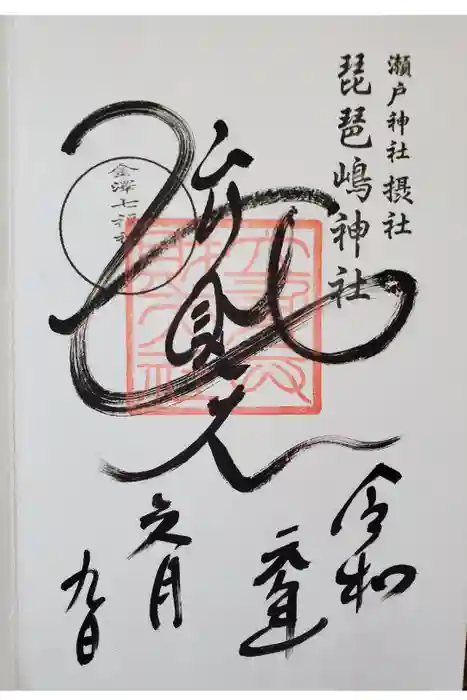 瀬戸神社 摂社
琵琶嶋神社
金澤七福神
令和
元年
六月
九日